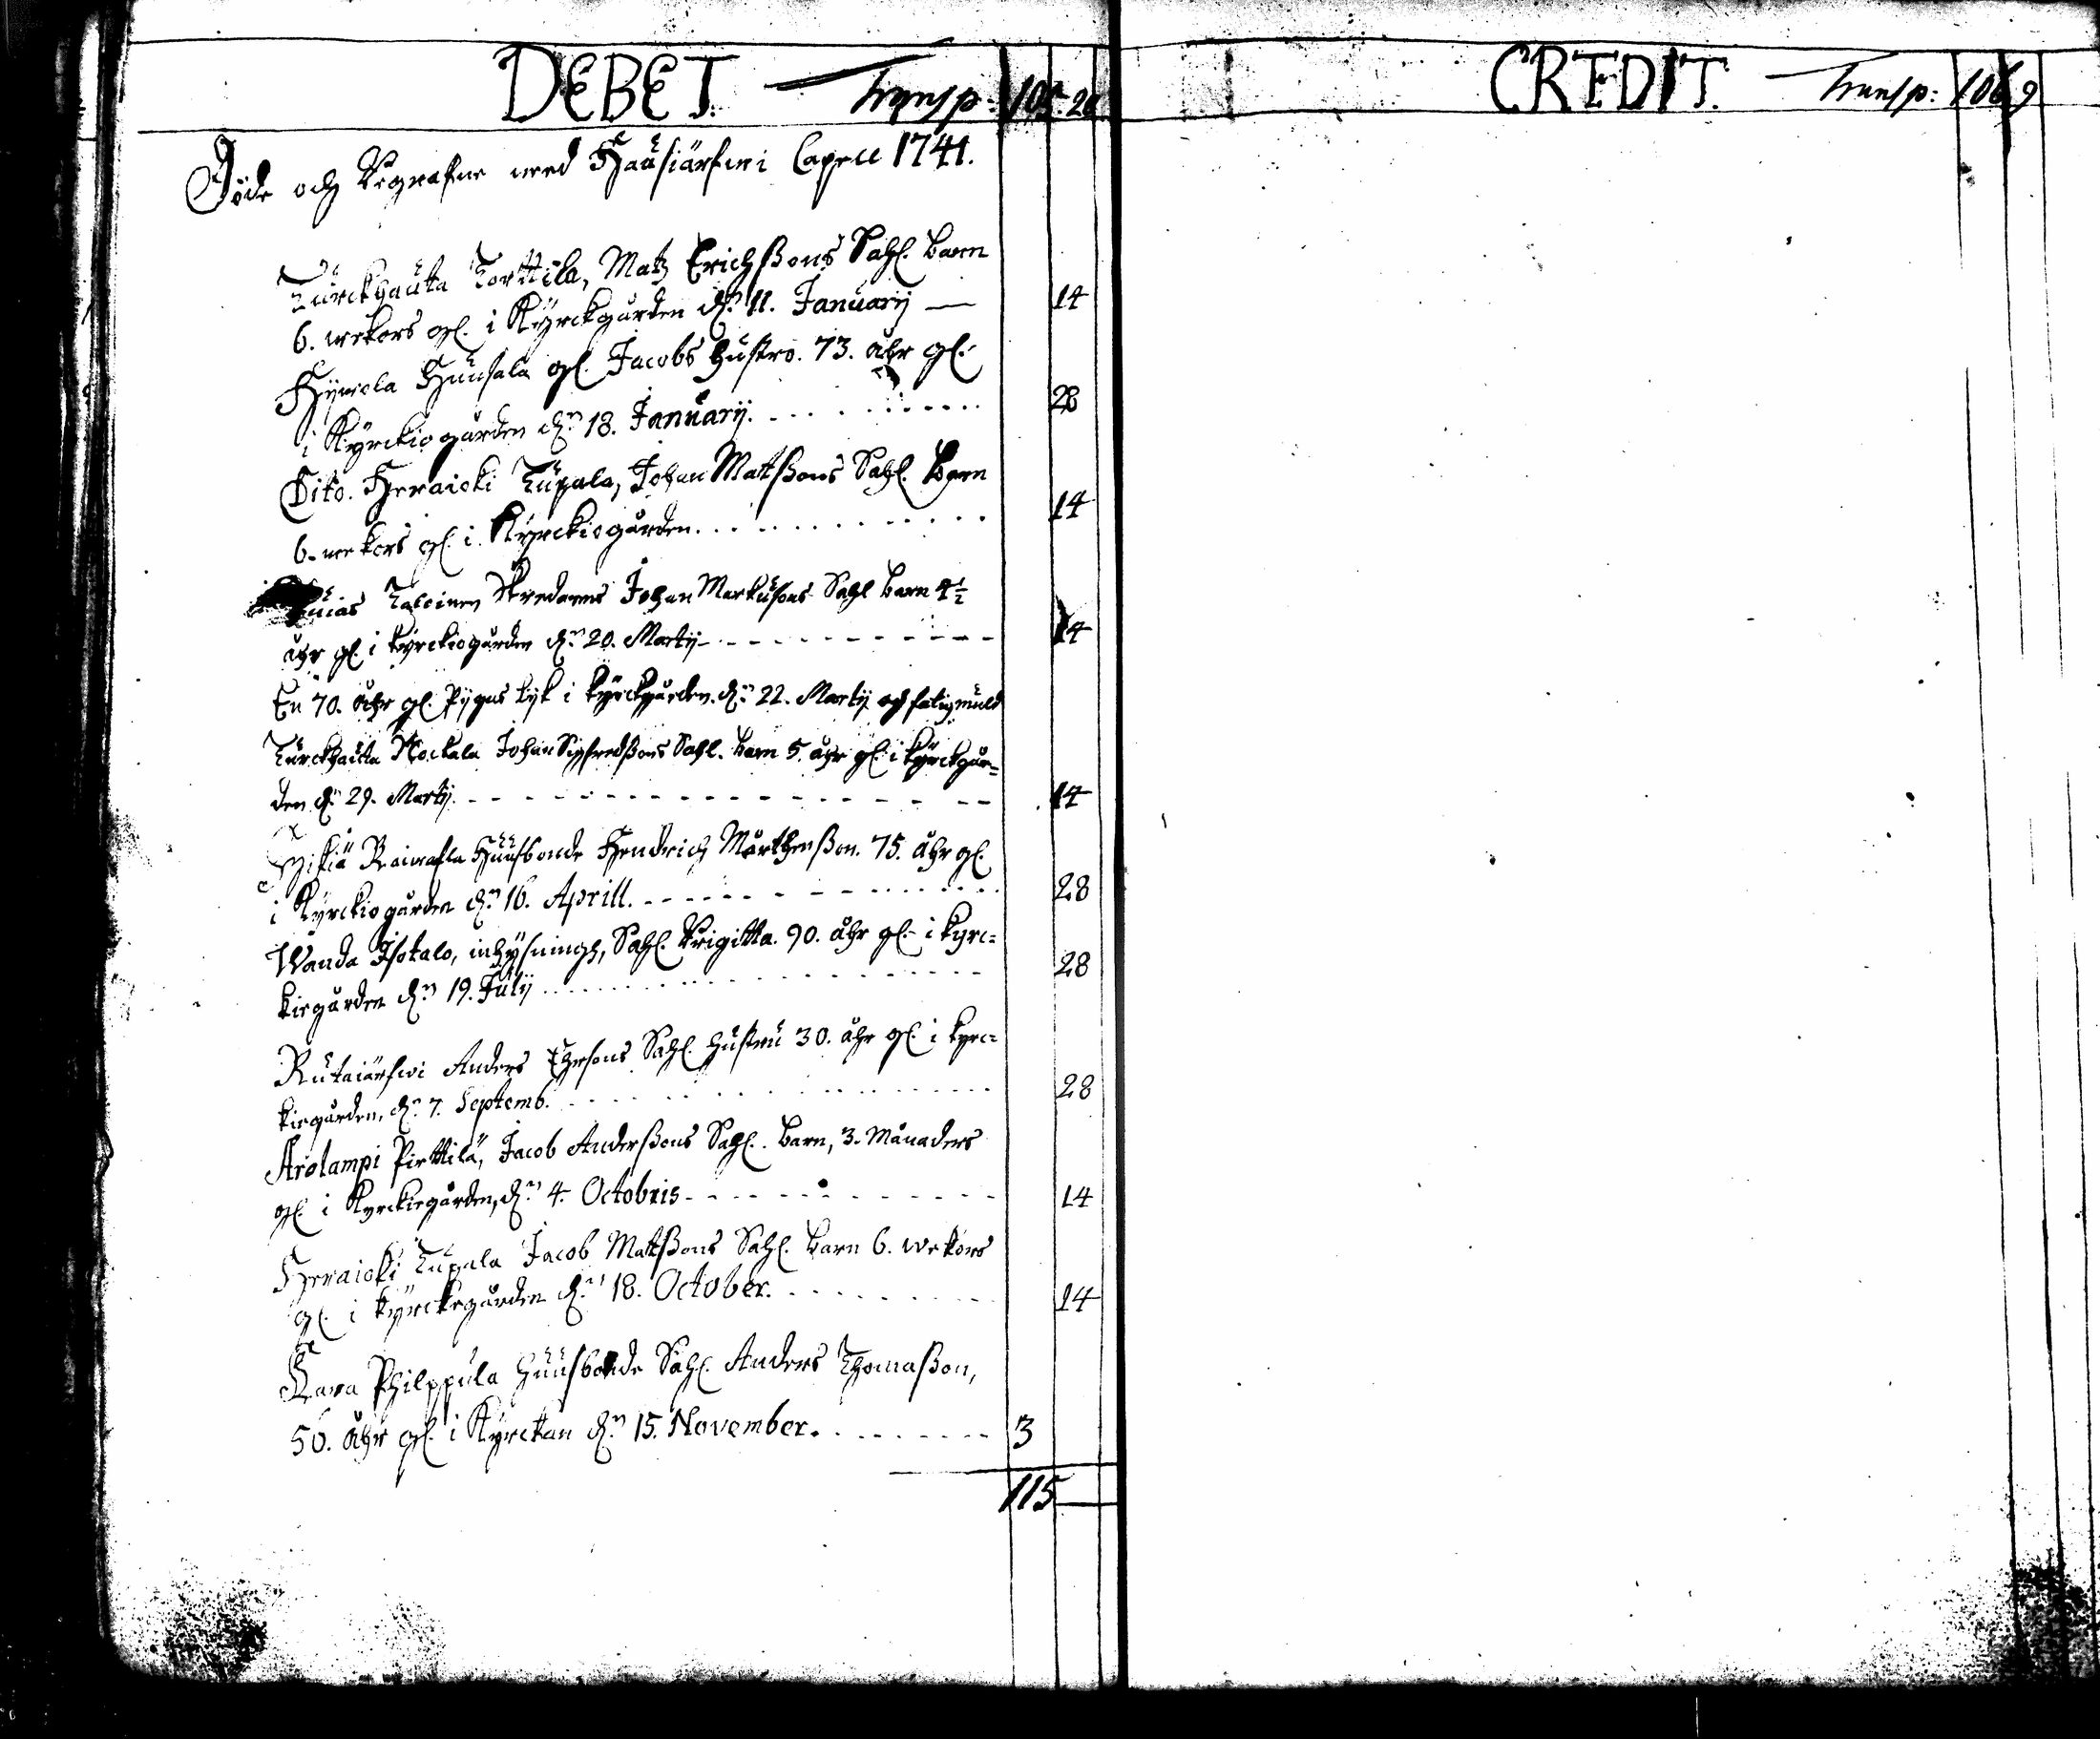 DEBET. Transp: 105. 20
Döde och Begrafne med Hausiärfwi Capell 1741.
Turckhauta Torttila, Matz Erichßons Sahl. barn
6. wekors gl. i Kyrckgården dn 11. Januarij — 14
Hyriola Huusala gl. Jacobs hustro. 73. åhr gl.
i Kyrckiogården dn 18. Januarij. 28
Dito. Heraioki Tupala, Johan Matßons Sahl. barn
6. wekors gl. i Kyrckiogården. 14
Johan Markusons Sahl barn 4½
åhr gl. i kyrckiogården dn 20. Martij 14
En 70. åhr gl. Pigas lijk i kyrckgården. dn 22. Martij
Turckhauta Nockala Johan Sigfredßons Sahl. barn 5. åhr gl. i kyrckgår=
den dn 29. Martij. 14
Huusbonde Hendrich Mårthenßon. 75. åhr gl.
i Kyrckiogården dn 16. Aprill. 28
Wanda Isotalo, inhysningh, Sahl. Brigitta. 90. åhr gl. i kyrc=
kiegården dn 19. Julij 28
Rutaiärfwi Anders Sahl. hustru 30. åhr gl. i kyrc=
kiegården, dn 7. Septemb. 28
Arolampi Pirttilä, Jacob Anderßons Sahl. barn, 3. Månaders
gl. i Kyrckiegården, dn 4. Octobris 14
Heraioki Tupala Jacob Matßons Sahl. barn 6. wekors
gl. i kyrckegården dn 18. October. 14
Kara Philppula huusbonde Sahl. Anders Thomaßon,
56. åhr gl. i Kyrckan dn 15. November. 3
115 —
CREDIT. Transp: 106 9